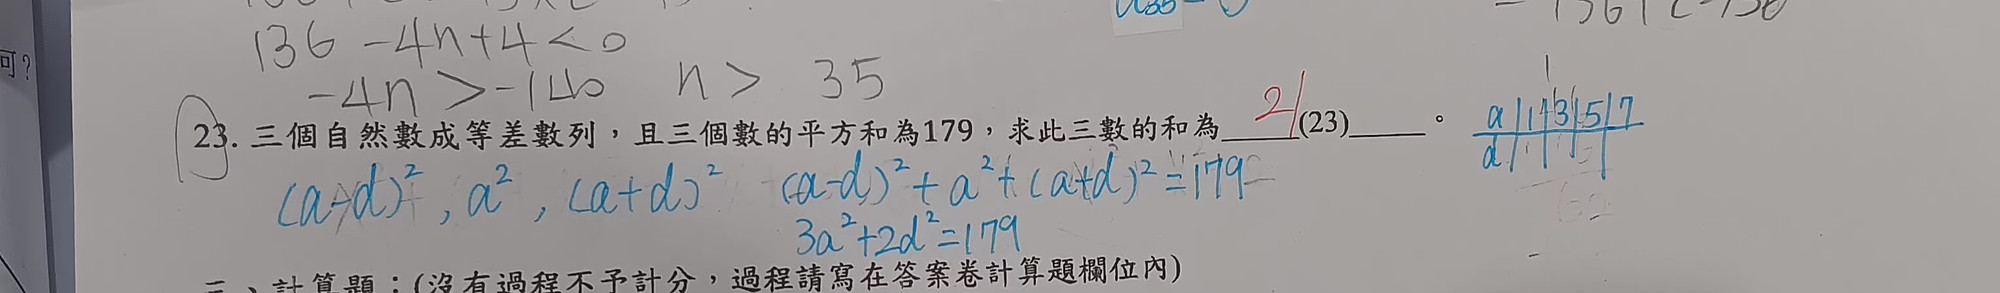 136 -4n+4<0
可?
-4n>-140 n> 35
23. 三個自然數成等差數列，且三個數的平方和為179，求此三數的和為 21 (23) 。
a 1 3 5 7
d
(a-d)², a², (a+d)² (a-d)²+a²+(a+d)²=179
3a²+2d²=179
三、計算題：(沒有過程不予計分，過程請寫在答案卷計算題欄位內)